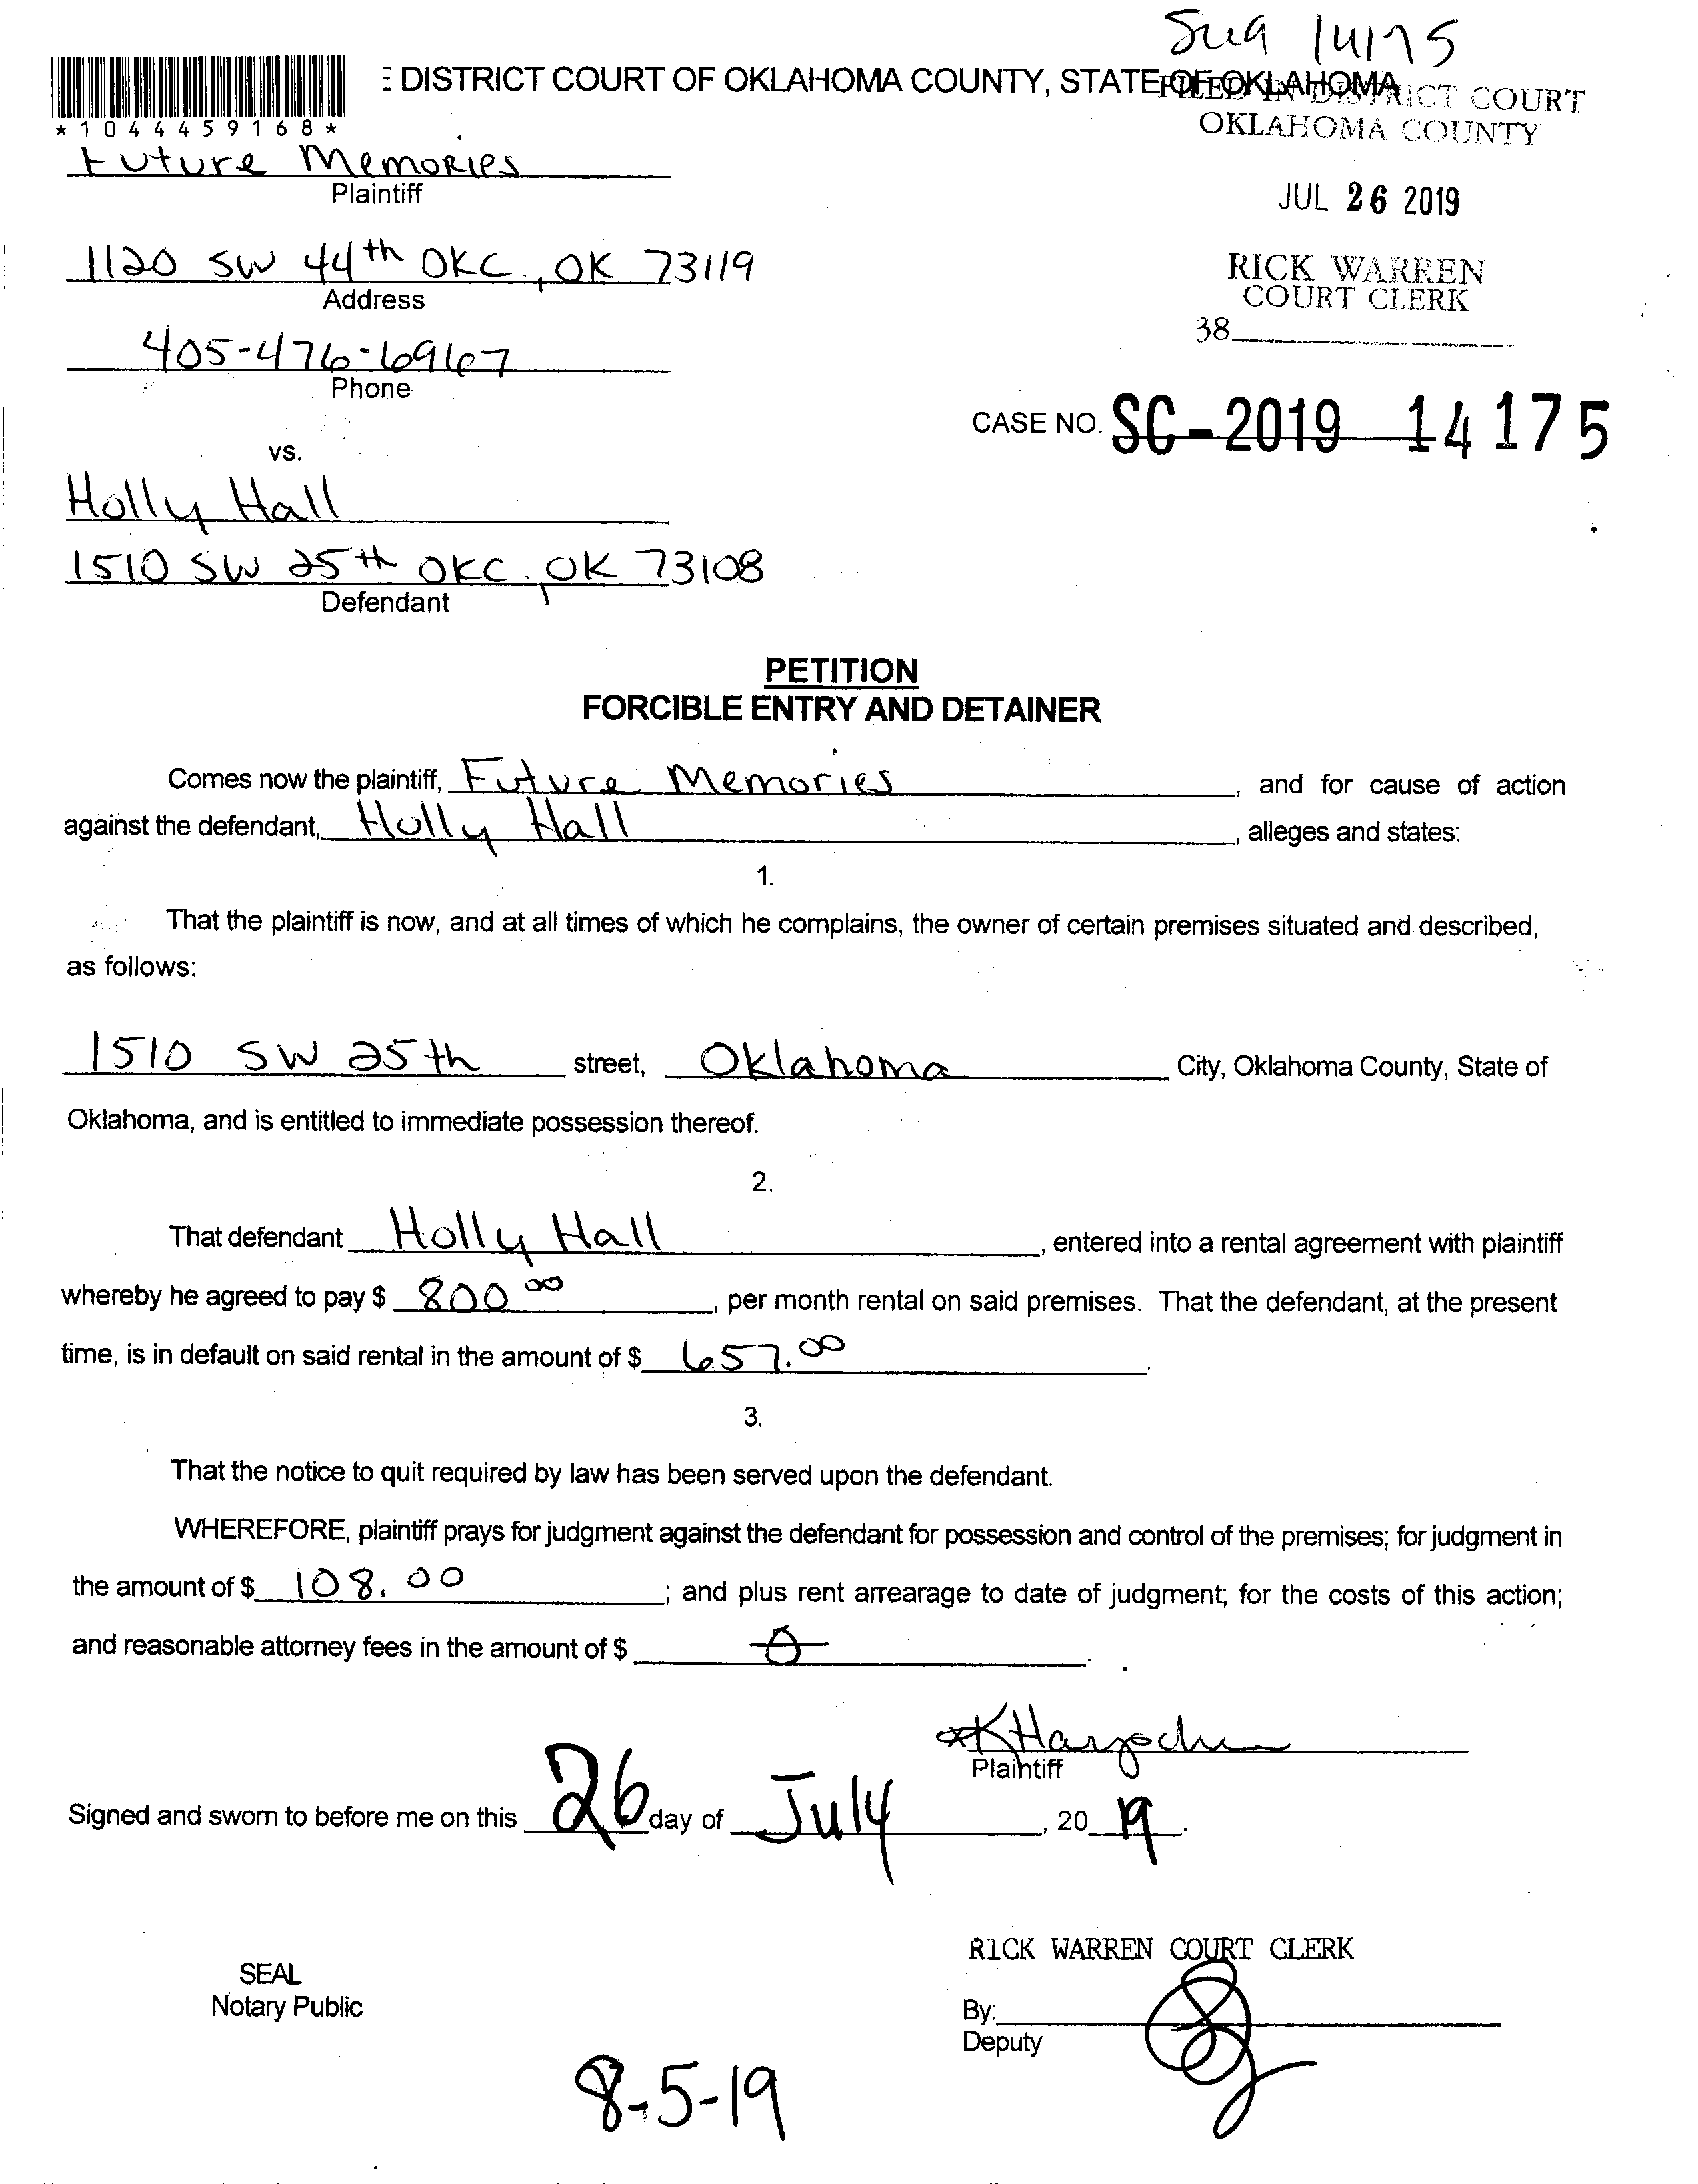 Sug 14175
DISTRICT COURT OF OKLAHOMA COUNTY, STATE OF OKLAHOMA
FILED IN DISTRICT COURT
OKLAHOMA COUNTY
*1044459168*
Future Memories
Plaintiff
JUL 26 2019
1120 SW 44th OKC, OK 73119
Address
RICK WARREN
COURT CLERK
38
405-476-6967
Phone
CASE NO. SC-2019 14175
vs.
Holly Hall
1510 SW 25th OKC, OK 73108
Defendant
PETITION
FORCIBLE ENTRY AND DETAINER
Comes now the plaintiff, Future Memories, and for cause of action
against the defendant, Holly Hall, alleges and states:
1.
That the plaintiff is now, and at all times of which he complains, the owner of certain premises situated and described,
as follows:
1510 SW 25th street, Oklahoma City, Oklahoma County, State of
Oklahoma, and is entitled to immediate possession thereof.
2.
That defendant Holly Hall, entered into a rental agreement with plaintiff
whereby he agreed to pay $ 800 00, per month rental on said premises. That the defendant, at the present
time, is in default on said rental in the amount of $ 657.00.
3.
That the notice to quit required by law has been served upon the defendant.
WHEREFORE, plaintiff prays for judgment against the defendant for possession and control of the premises; for judgment in
the amount of $ 108.00; and plus rent arrearage to date of judgment; for the costs of this action;
and reasonable attorney fees in the amount of $ 0.
Plaintiff
Signed and sworn to before me on this 26 day of July, 2019.
RICK WARREN COURT CLERK
SEAL
Notary Public
By:
Deputy
8-5-19